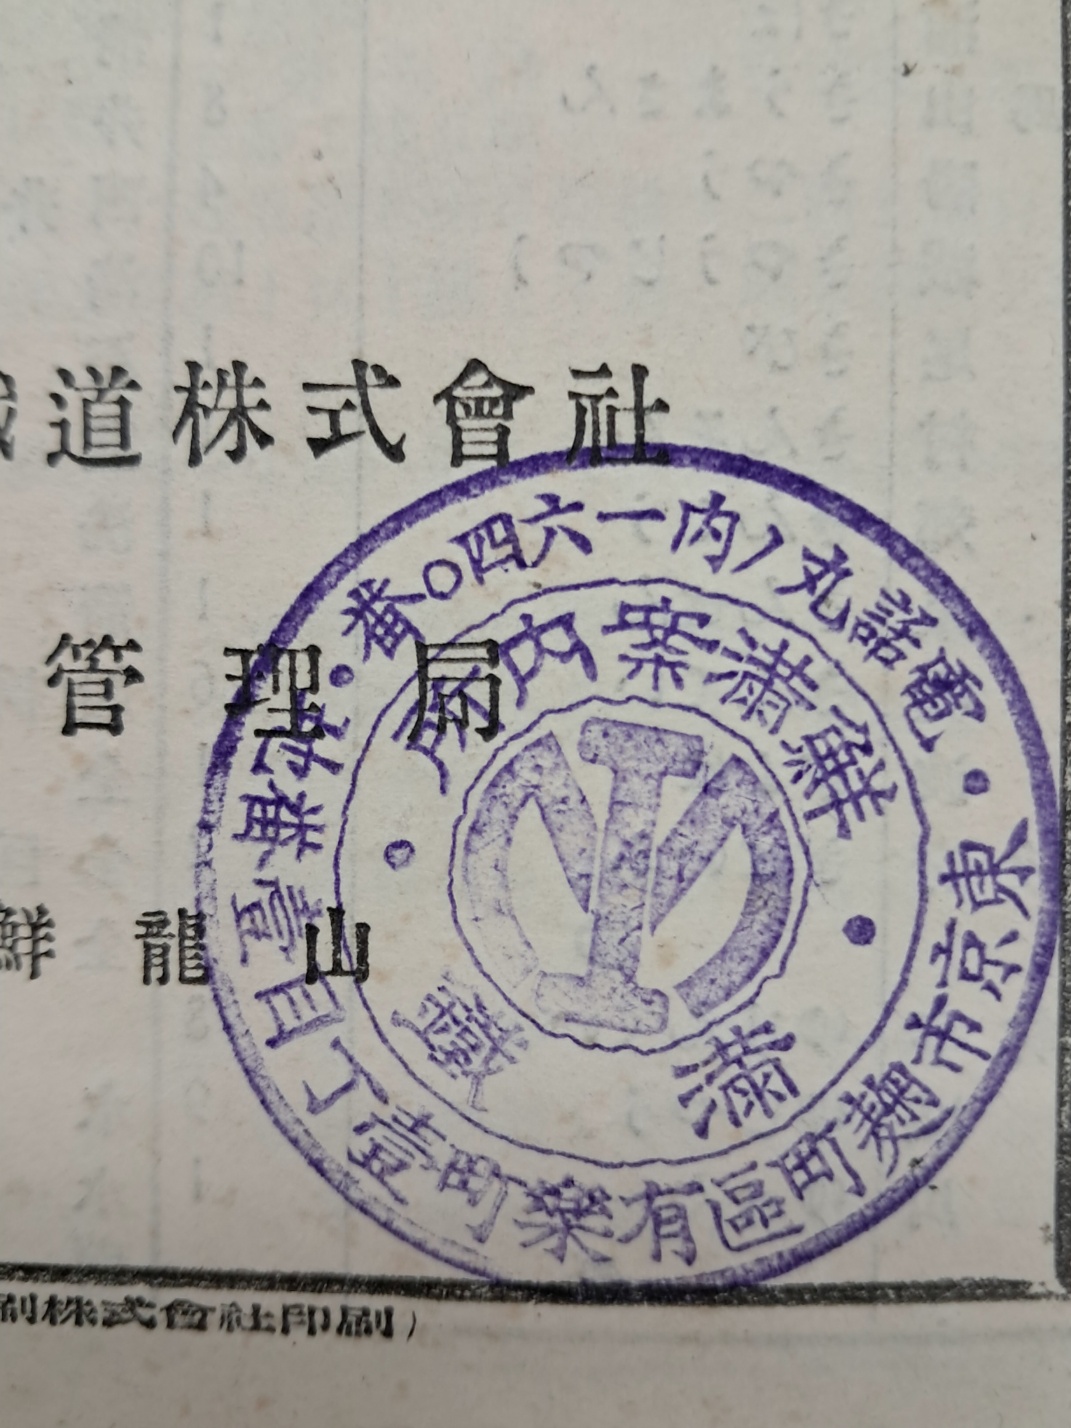 道株式會社
管理局
鮮龍山
電話丸ノ内一六四〇番
東京市麹町區有樂町壹丁目
鮮滿案内所
滿鐵
刷株式會社印刷)